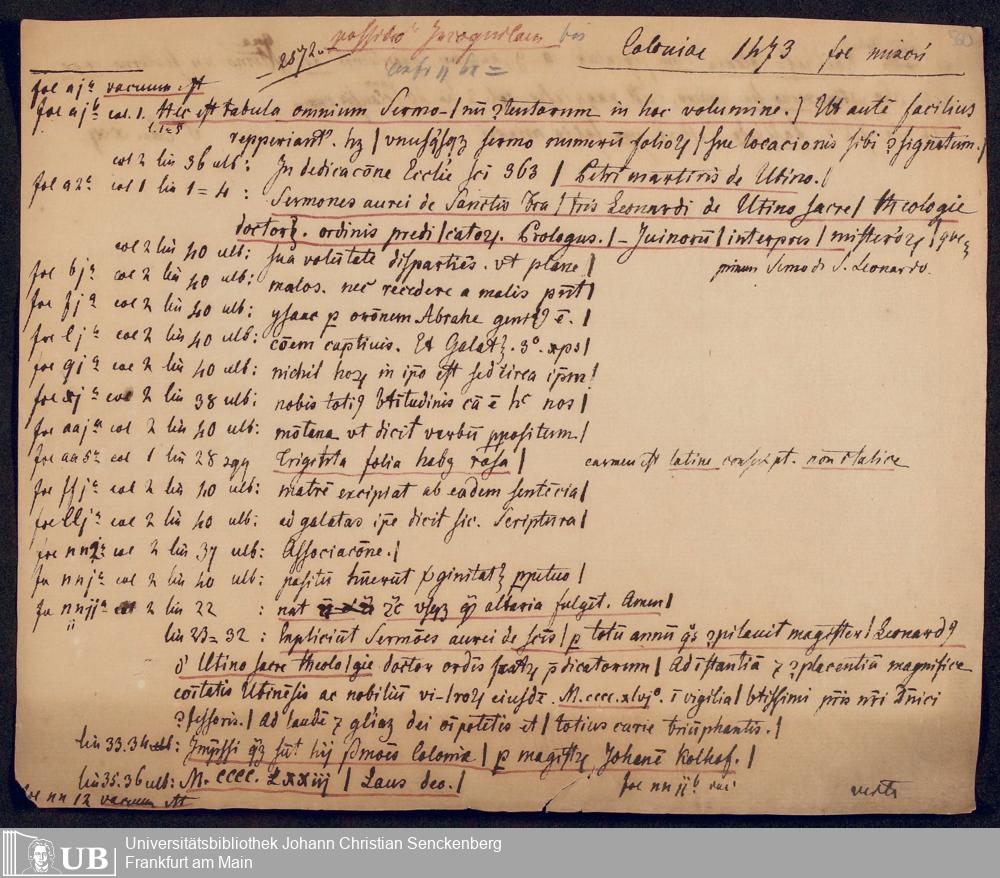 2872. possideo bis
Coloniae 1473 foe minori
foe aja vacuum est
foe ajb col. 1. Hec est tabula omnium Sermo-/nū ꝯtentorum in hoc volumine. / Ut autē facilius
l. 1=5 repperiantr. hz / vnusqsqz sermo numerū folioꝝ / sue locacionis sibi ꝯsignatum. /
col 2 lin 36 ulb: In dedicacōne Ecclie sci 363 / Petri martiris de Utino. /
foe a2a col 1 lin 1=4 : Sermones aurei de Sanctis Fra / tris Leonardi de Utino sacre / theologie
doctorꝫ. ordinis predi / catoꝝ. Prologus. /
interpres / misterioꝝ / que
col 2 lin 40 ulb: sua volūtate dispartiēs. vt plane /
primum Sermo di S. Leonardo.
foe bja col 2 lin 40 ulb: malos. nec recedere a malis pn̄t /
foe fja col 2 lin 40 ulb: ysaac p orōnem Abrahe ē. /
foe lja col 2 lin 40 ulb: cōem captiuis. Et Galatꝫ. 3o. xps /
foe qja col 2 lin 40 ulb: nichil hoꝝ in ipo est sed circa ipm /
foe xja col 2 lin 38 ulb: nobis btītudinis cā ē hc nos /
foe aaja col 2 lin 40 ulb: mōtana vt dicit verbū ppositum /
foe aa5a col 1 lin 28 sqq Trigīta folia habꝫ rosa / carmen est latine conscript. non italice
foe ffja col 2 lin 40 ulb: matrē excipiat ab eadem sentēcia /
foe llja col 2 lin 40 ulb: ad galatas ipe dicit sic. Scriptura /
foe nn col 2 lin 37 ulb: Associacōne. /
foe nnja col 2 lin 40 ulb: positū hūerūt pptuo /
foe nnjja 2 lin 22 : nāt vsqꝫ altaria fulgēt. Amen /
lin 23=32 : Expliciūt Sermōes aurei de scīs / p totū annū qs ꝯpilauit magister / Leonardꝰ
d' Utino sacre theolo / gie doctor ordīs p̄dicatorum / Ad īstantiā ⁊ ꝯplacentiā magnifice
cōitatis Utinēsis ac nobiliū vi-/roꝝ eiusdē. M.cccc.xlvjo. ī vigilia / btissimi pris nri Dnici
ꝯfessoris. / Ad laudē ⁊ dei oīpotētis et / totius curie triūphantis. /
lin 33.34 ulb: Impssi sūt hij smōes Colonie / p magistꝝ Johanē Kolhof. /
lin 35.36 ulb: M. CCCC. Lxxiij / Laus deo. / foe nn jjb vac verte
foe nn 12 vacuum est
UB Universitätsbibliothek Johann Christian Senckenberg
Frankfurt am Main